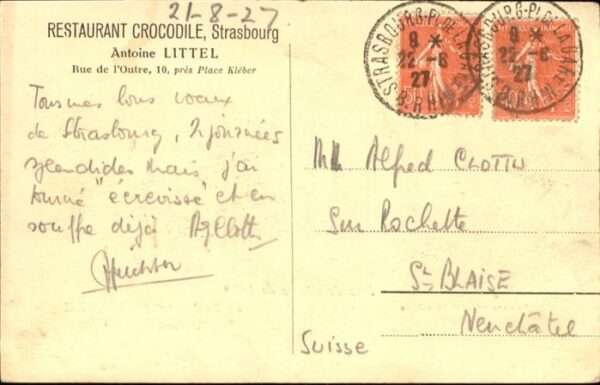 21-8-27
RESTAURANT CROCODILE, Strasbourg
Antoine LITTEL
Rue de l'Outre, 10, près Place Kléber
Tous mes bons voeux
de Strasbourg, 2 journées
splendides mais j'ai
tourné "écrevisse" et en
souffre déjà
STRASBOURG-PL. DE LA GARE
9 *
22-8
27
B. RHIN
STRASBOURG-PL. DE LA GARE
9 *
22-8
27
B. RHIN
Alfred CLOTTU
Sur Rochette
St BLAISE
Neuchâtel
Suisse